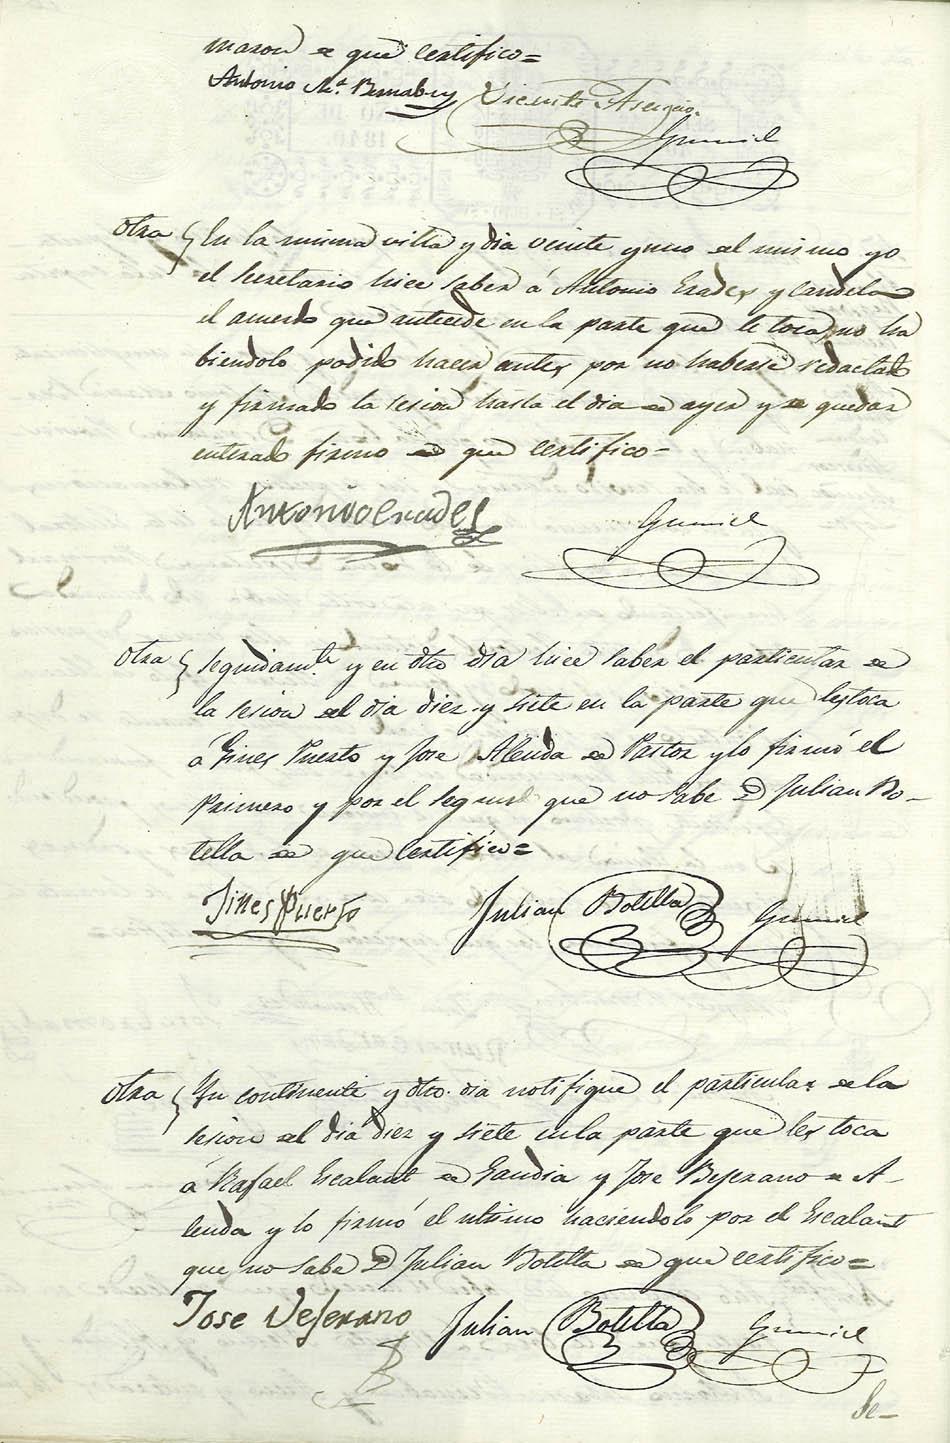 maron de que certifico=
Antonio Mª. Bernabeu Vicente Asencio
Gumiel
Otra } En la misma villa y dia veinte y uno del mismo yo
el Secretario hice saber á Antonio Erades y Candela
el acuerdo que antecede en la parte que le toca, no ha
biendolo podido hacer antes por no haberse redactado
y firmado la sesion hasta el dia de ayer y de quedar
enterado firmo de que certifico=
Antonio erades Gumiel
Otra } Seguidamte. y en dho dia hice saber el particular de
la sesion del dia diez y siete en la parte que les toca
á Gines Puerto y Jose Alenda de Pastor y lo firmó el
Primero y por el segundo que no sabe D Julian Bo-
tella de que certifico=
Jines Puerto Julian Botella Gumiel
Otra } In continenti y dho dia notifique el particular de la
sesion del dia diez y siete en la parte que les toca
á Rafael Escalant de Gandia y Jose Beferano de A-
lenda y lo firmó el ultimo haciendolo por el Escalant
que no sabe D Julian Botella de que certifico=
Jose Veferano Julian Botella Gumiel
Se-